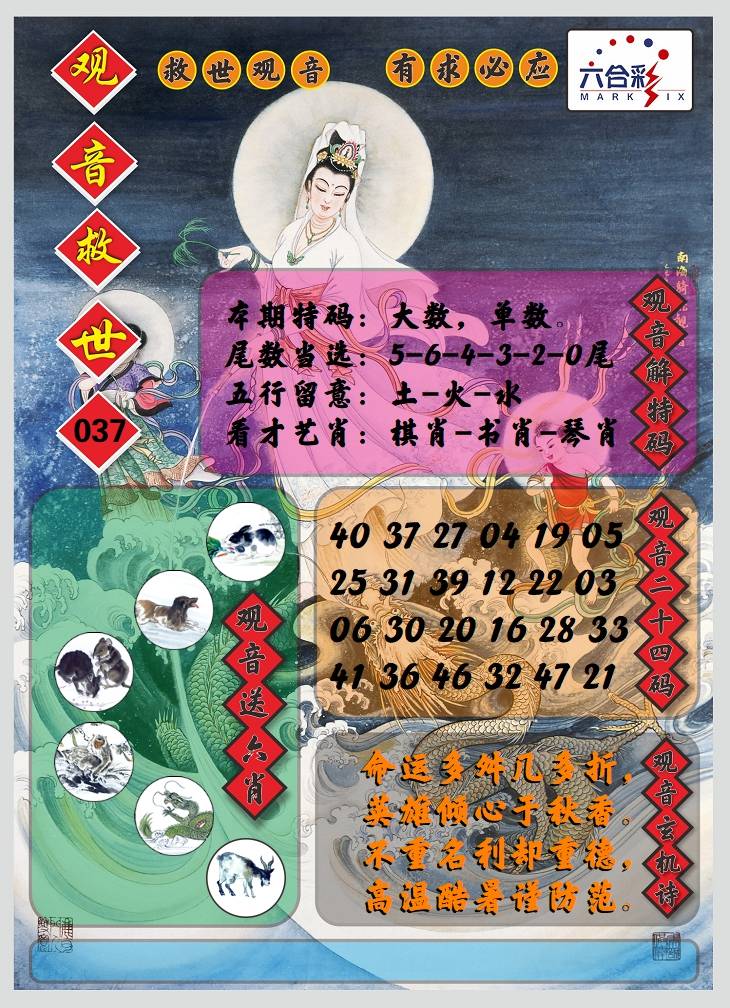 观音救世
037
救世观音 有求必应
六合彩
MARK SIX
南海
观音解特码
本期特码：大数，单数。
尾数当选：5-6-4-3-2-0尾
五行留意：土-火-水
看才艺肖：棋肖-书肖-琴肖
观音送六肖
观音二十四码
40 37 27 04 19 05
25 31 39 12 22 03
06 30 20 16 28 33
41 36 46 32 47 21
观音玄机诗
命运多舛几多折，
英雄倾心于秋香。
不重名利却重德，
高温酷暑谨防范。